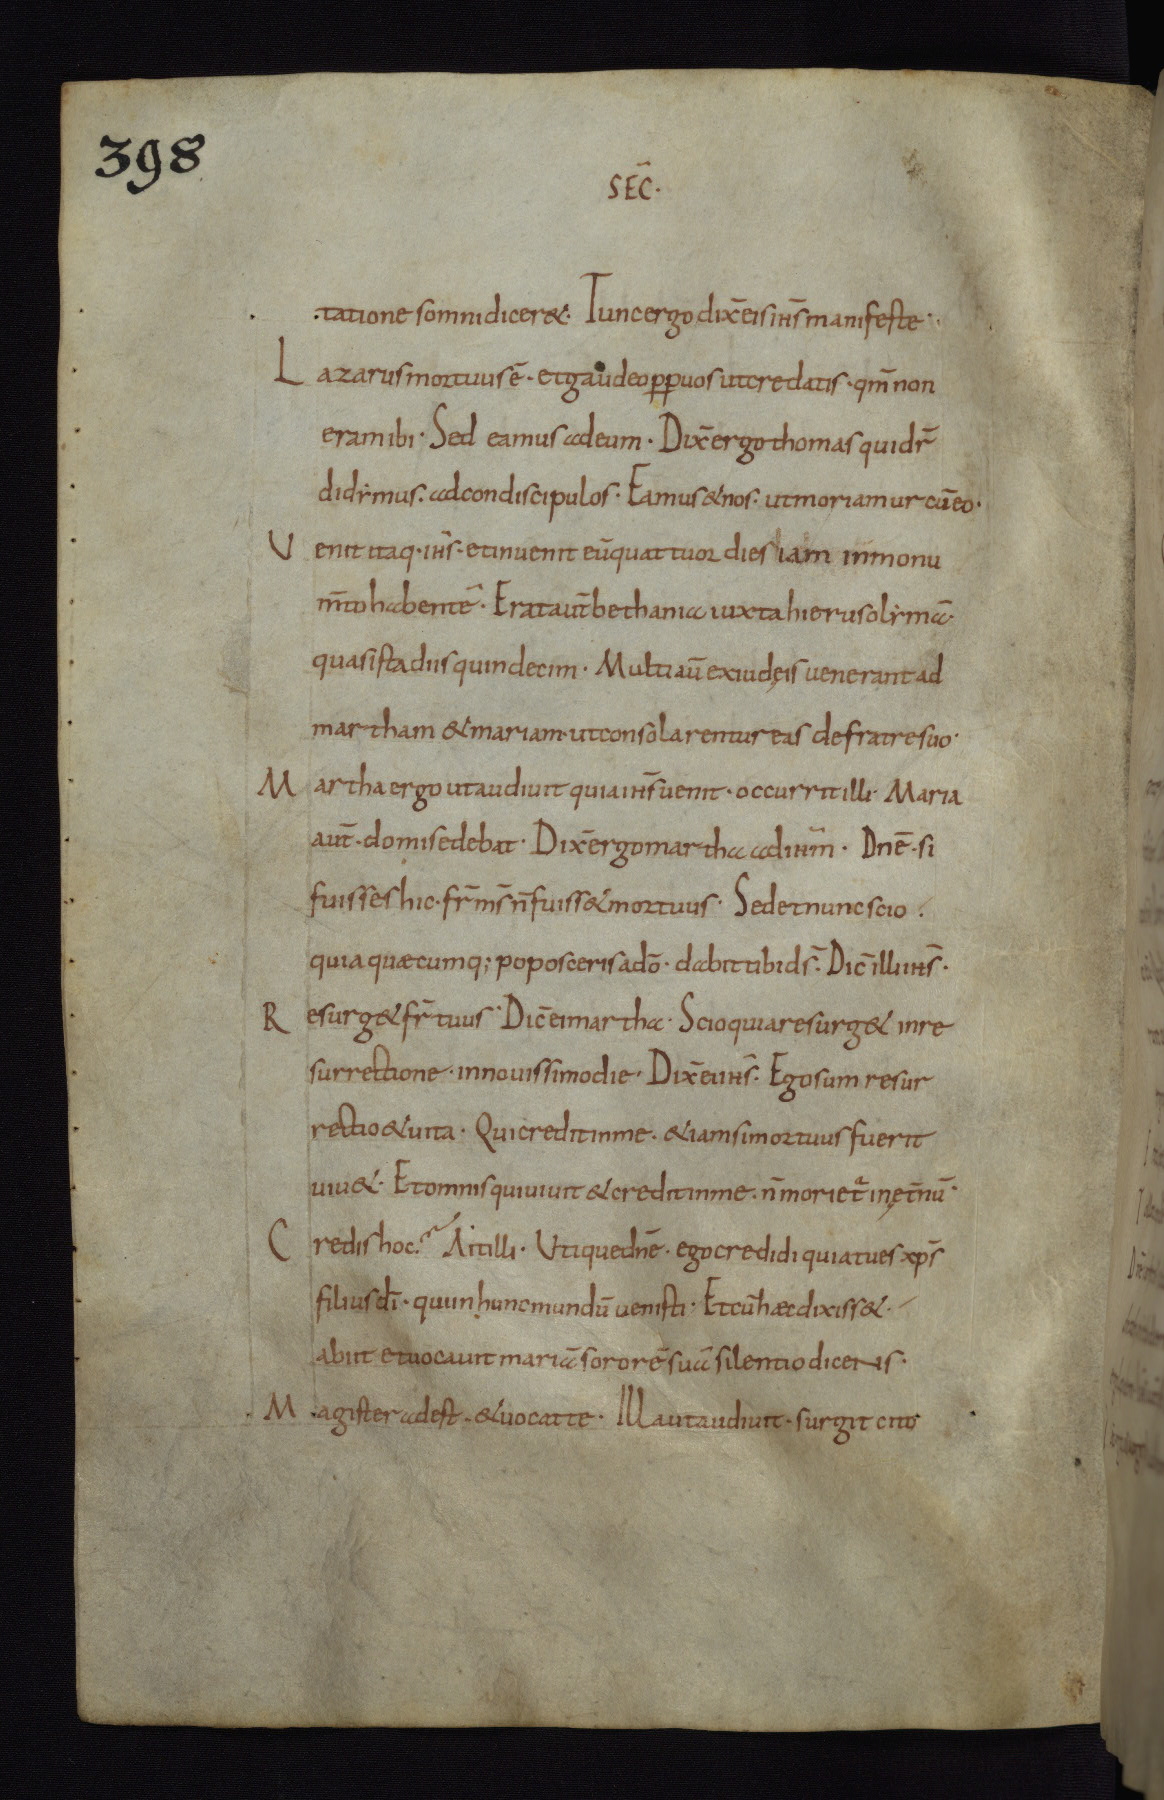 398
SEC̄·
tatione somni diceret&. Tunc ergo dix̄ eis ih̄s manifeste·
Lazarus mortuus ē· et gaudeo pp̄ uos ut credatis· qm̄ non
eram ibi· Sed eamus ad eum· Dix̄ ergo thomas qui dr̄
didẏmus· ad condiscipulos· Eamus & nos· ut moriamur cū eo·
Uenit itaq· ih̄s· et inuenit eū quattuor dies iam in monu
m̄to habentē· Erat aut̄ bethania iuxta hierusolẏmā·
quasi stadiis quindecim· Multi aū ex iudęis uenerant ad
martham & mariam· ut consolarentur eas de fratre suo·
Martha ergo ut audiuit quia ih̄s uenit· occurrit illi· Maria
aut̄· domi sedebat· Dix̄ ergo martha ad ih̄m· Dnē· si
fuisses hic· fr̄ ms̄ n̄ fuiss& mortuus· Sed et nunc scio
quia quæcumq; poposceris a dō· dabit tibi ds̄· Dic̄ illi ih̄s·
Resurg& fr̄ tuus· Dic̄ ei martha· Scio quia resurg& in re
surrectione· in nouissimo die· Dix̄ ei ih̄s· Ego sum resur
rectio & uita· Qui credit in me· & iam si mortuus fuerit
uiu&· Et omnis qui uiuit & credit in me· n̄ moriet̄ in ęt̄nū·
Credis hoc? Ait illi· Utique dnē· ego credidi quia tu es xp̄s
filius dī· qui in hunc mundū uenisti· Et cū hæc dixiss&·
abiit et uocauit mariā sororē suā silentio dicens·
Magister adest· & uocat te· Illa ut audiuit· surgit cito